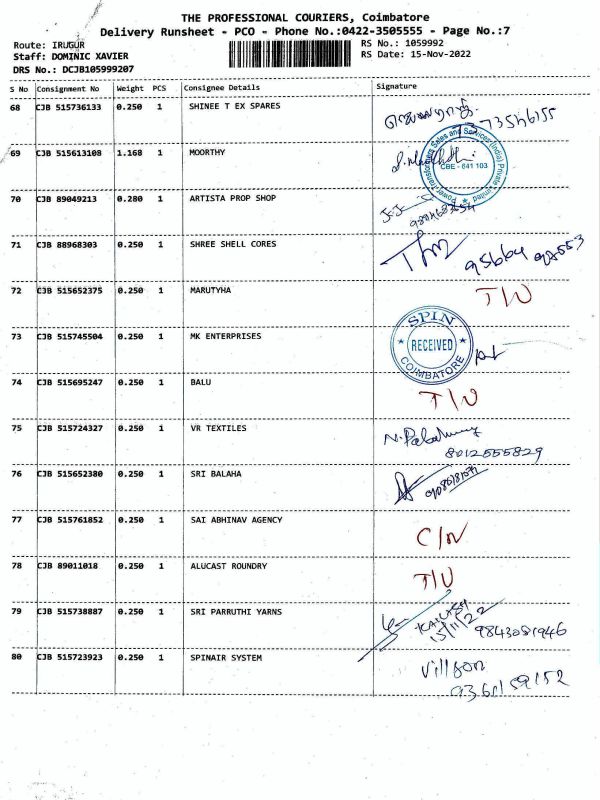 THE PROFESSIONAL COURIERS, Coimbatore
Delivery Runsheet - PCO - Phone No.:0422-3505555 - Page No.:7
Route: IRUGUR RS No.: 1059992
Staff: DOMINIC XAVIER RS Date: 15-Nov-2022
DRS No.: DCJB105999207
S No Consignment No Weight PCS Consignee Details Signature
68 CJB 515736133 0.250 1 SHINEE T EX SPARES
69 CJB 515613108 1.168 1 MOORTHY
Power Transformers Sales and Services (India) Private Limited
CBE - 641 103
70 CJB 89049213 0.280 1 ARTISTA PROP SHOP
71 CJB 88968303 0.250 1 SHREE SHELL CORES
72 CJB 515652375 0.250 1 MARUTYHA T/U
73 CJB 515745504 0.250 1 MK ENTERPRISES
SPIN
RECEIVED
COIMBATORE
74 CJB 515695247 0.250 1 BALU T/U
75 CJB 515724327 0.250 1 VR TEXTILES
8012555829
76 CJB 515652380 0.250 1 SRI BALAHA
77 CJB 515761852 0.250 1 SAI ABHINAV AGENCY C/N
78 CJB 89011018 0.250 1 ALUCAST ROUNDRY T/U
79 CJB 515738887 0.250 1 SRI PARRUTHI YARNS
15/11/22 9843081946
80 CJB 515723923 0.250 1 SPINAIR SYSTEM
Villson
9361159152